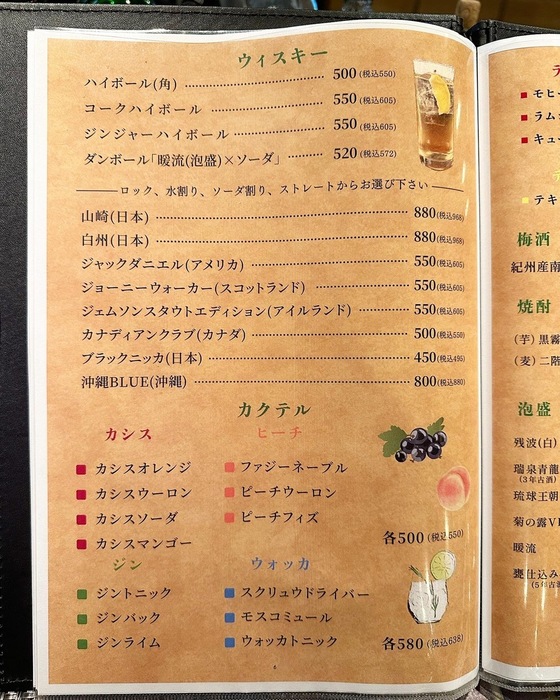 ウィスキー
ハイボール(角) 500(税込550)
コークハイボール 550(税込605)
ジンジャーハイボール 550(税込605)
ダンボール「暖流(泡盛)×ソーダ」 520(税込572)
ロック、水割り、ソーダ割り、ストレートからお選び下さい
山崎(日本) 880(税込968)
白州(日本) 880(税込968)
ジャックダニエル(アメリカ) 550(税込605)
ジョーニーウォーカー(スコットランド) 550(税込605)
ジェムソンスタウトエディション(アイルランド) 550(税込605)
カナディアンクラブ(カナダ) 500(税込550)
ブラックニッカ(日本) 450(税込495)
沖縄BLUE(沖縄) 800(税込880)
カクテル
カシス
カシスオレンジ
カシスウーロン
カシスソーダ
カシスマンゴー
ピーチ
ファジーネーブル
ピーチウーロン
ピーチフィズ
各500(税込550)
ジン
ジントニック
ジンバック
ジンライム
ウォッカ
スクリュウドライバー
モスコミュール
ウォッカトニック
各580(税込638)
6
モヒ
ラム
キュー
テキ
梅酒
紀州産南
焼酎
(芋) 黒霧
(麦) 二階
泡盛
残波(白)
瑞泉青龍
(3年古酒)
琉球王朝
菊の露V
暖流
甕仕込み
(5年古酒